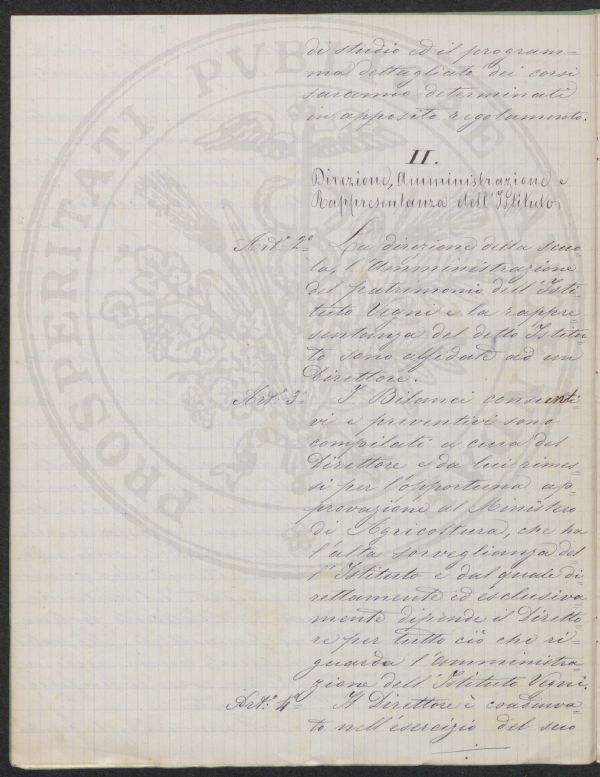 di studio ed il program=
ma dettagliato dei corsi
saranno determinati
in apposito regolamento.
II.
Direzione, Amministrazione e
Rappresentanza dell'Istituto
Art. 2º La direzione della scuo
la, l'Amministrazione
del patrimonio dell'Isti=
tuto Vegni e la rappre
sentanza del detto Istitu
to sono affidate ad un
Direttore.
Art. 3. I Bilanci consunti=
vi e preventivi sono
compilati a cura del
Direttore e da lui rimes=
si per l'opportuna ap=
provazione al Ministero
di Agricoltura, che ha
l'alta sorveglianza del
l'Istituto e dal quale di=
rettamente ed esclusiva
mente dipende il Diretto=
re per tutto ciò che ri=
guarda l'amministra
zione dell'Istituto Vegni.
Art. 4º Il Direttore è coadiuva=
to nell'esercizio del suo
PROSPERITATI PUBLICAE